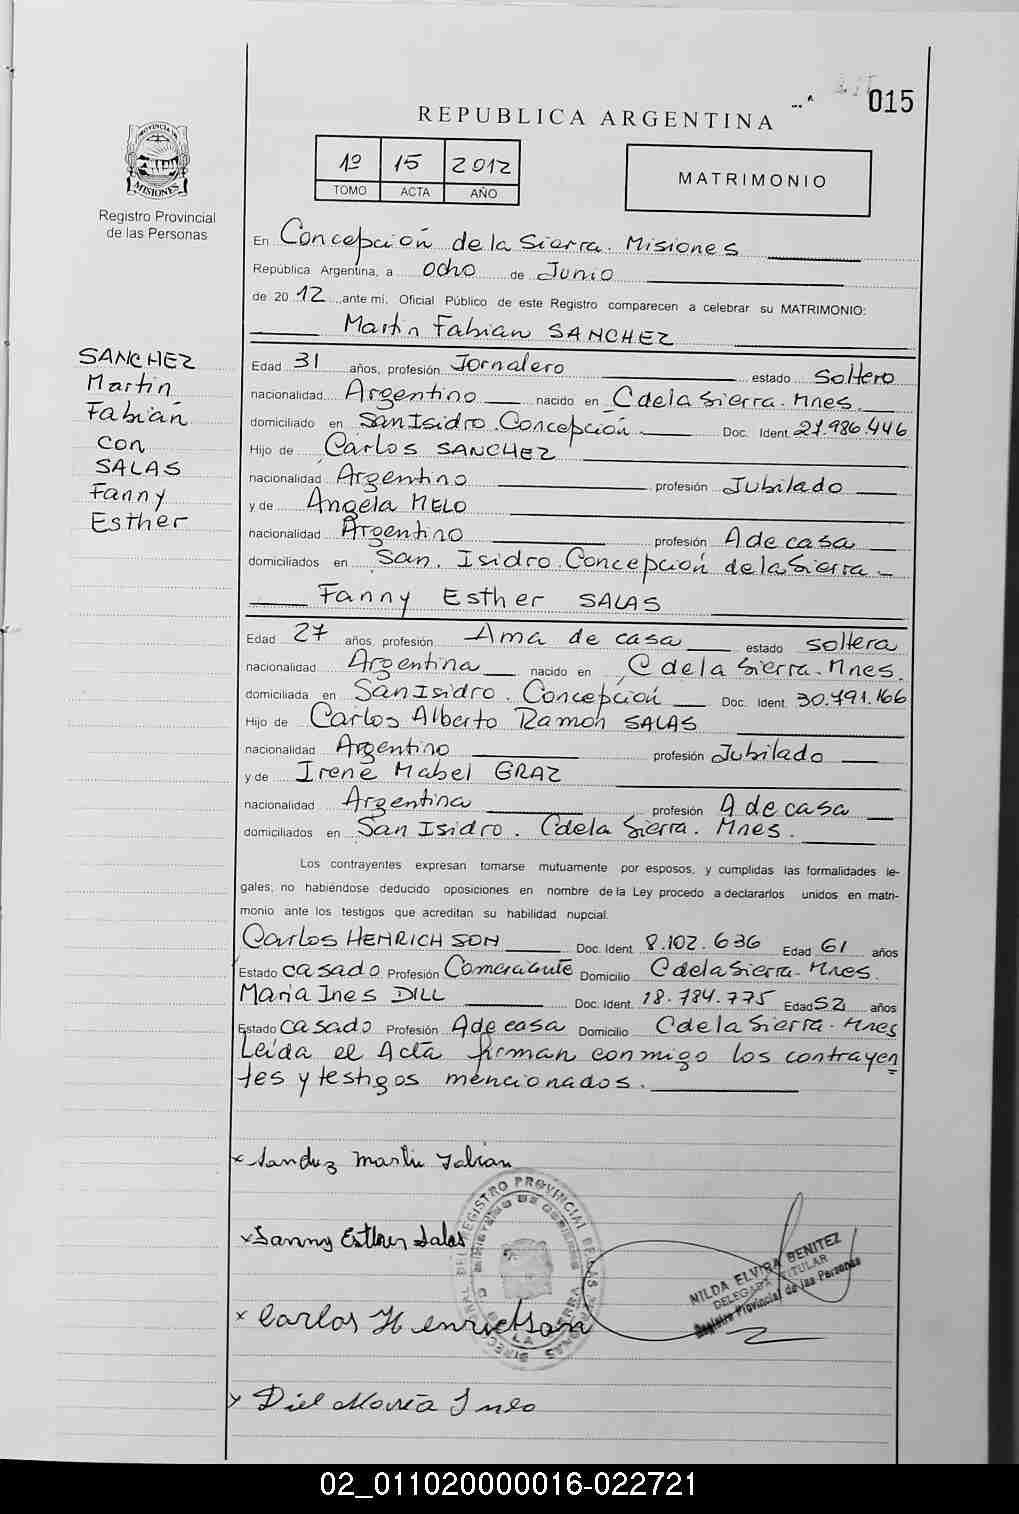 015
REPUBLICA ARGENTINA
PROVINCIA DE
MISIONES
Registro Provincial
de las Personas
1º 15 2012
TOMO ACTA AÑO
MATRIMONIO
En Concepción de la Sierra. Misiones
República Argentina, a ocho de Junio
de 2012 ante mi, Oficial Público de este Registro comparecen a celebrar su MATRIMONIO:
Martin Fabian SANCHEZ
SANCHEZ
Martin
Fabián
con
SALAS
Fanny
Esther
Edad 31 años, profesión Jornalero estado soltero
nacionalidad Argentino nacido en C de la Sierra. Mnes.
domiciliado en San Isidro. Concepción Doc. Ident. 21.986.446
Hijo de Carlos SANCHEZ
nacionalidad Argentino profesión Jubilado
y de Angela MELO
nacionalidad Argentino profesión A de casa
domiciliados en San. Isidro. Concepción de la Sierra
Fanny Esther SALAS
Edad 27 años, profesión Ama de casa estado soltera
nacionalidad Argentina nacido en C de la Sierra. Mnes.
domiciliada en San Isidro. Concepción Doc. Ident. 30.791.166
Hijo de Carlos Alberto Ramon SALAS
nacionalidad Argentino profesión Jubilado
y de Irene Mabel GRAZ
nacionalidad Argentina profesión A de casa
domiciliados en San Isidro. C de la Sierra. Mnes.
Los contrayentes expresan tomarse mutuamente por esposos, y cumplidas las formalidades le-
gales, no habiéndose deducido oposiciones en nombre de la Ley procedo a declararlos unidos en matri-
monio ante los testigos que acreditan su habilidad nupcial.
Carlos HENRICHSON Doc. Ident. 8.102.636 Edad 61 años
Estado casado Profesión Comerciante Domicilio C de la Sierra. Mnes.
Maria Ines DILL Doc. Ident. 18.784.775 Edad 52 años
Estado casado Profesión A de casa Domicilio C de la Sierra. Mnes
Leída el Acta firman conmigo los contrayen
tes y testigos mencionados.
x Sanchez Martin Fabian
x Fanny Esther Salas
x Carlos Henrichson
x Diel María Ines
NILDA ELVIRA BENITEZ
DELEGADA TITULAR
Registro Provincial de las Personas
02_011020000016-022721